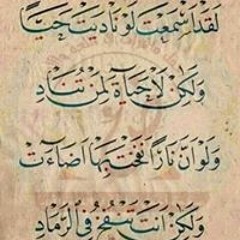 لَقَدْ أَسْمَعْتَ لَوْ نَادَيْتَ حَيًّا
وَلَكِنْ لَا حَيَاةَ لِمَنْ تُنَادِ
وَلَوْ أَنَّ نَارًا نَفَخْتَ بِهَا أَضَاءَتْ
وَلَكِنْ أَنْتَ تَنْفُخُ فِي الرَّمَادِ